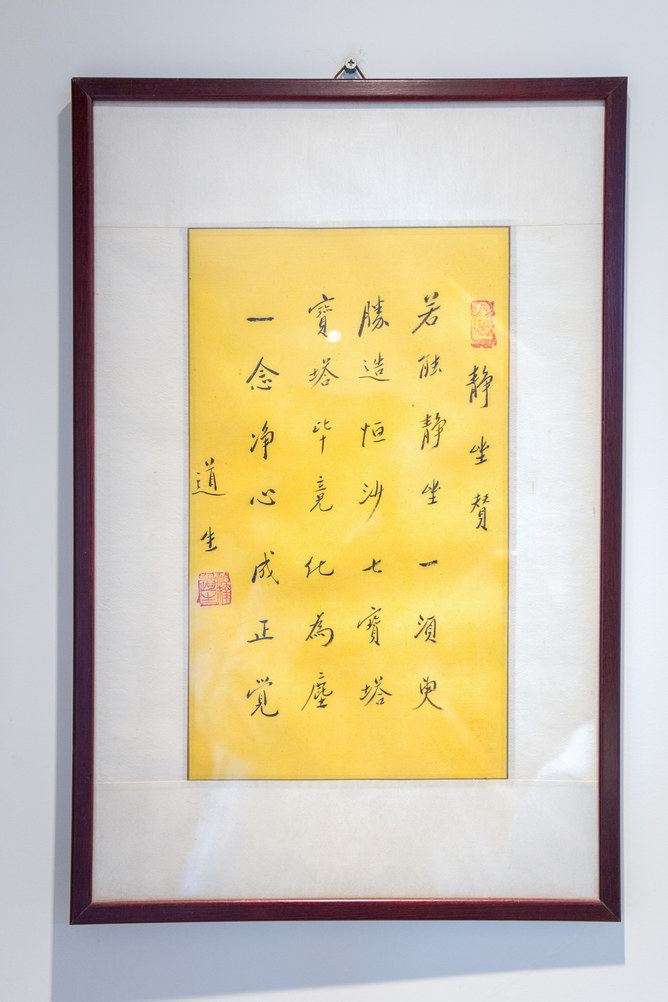 静坐赞
若能静坐一须臾
勝造恒沙七寶塔
寶塔毕竟化為塵
一念净心成正觉
道生